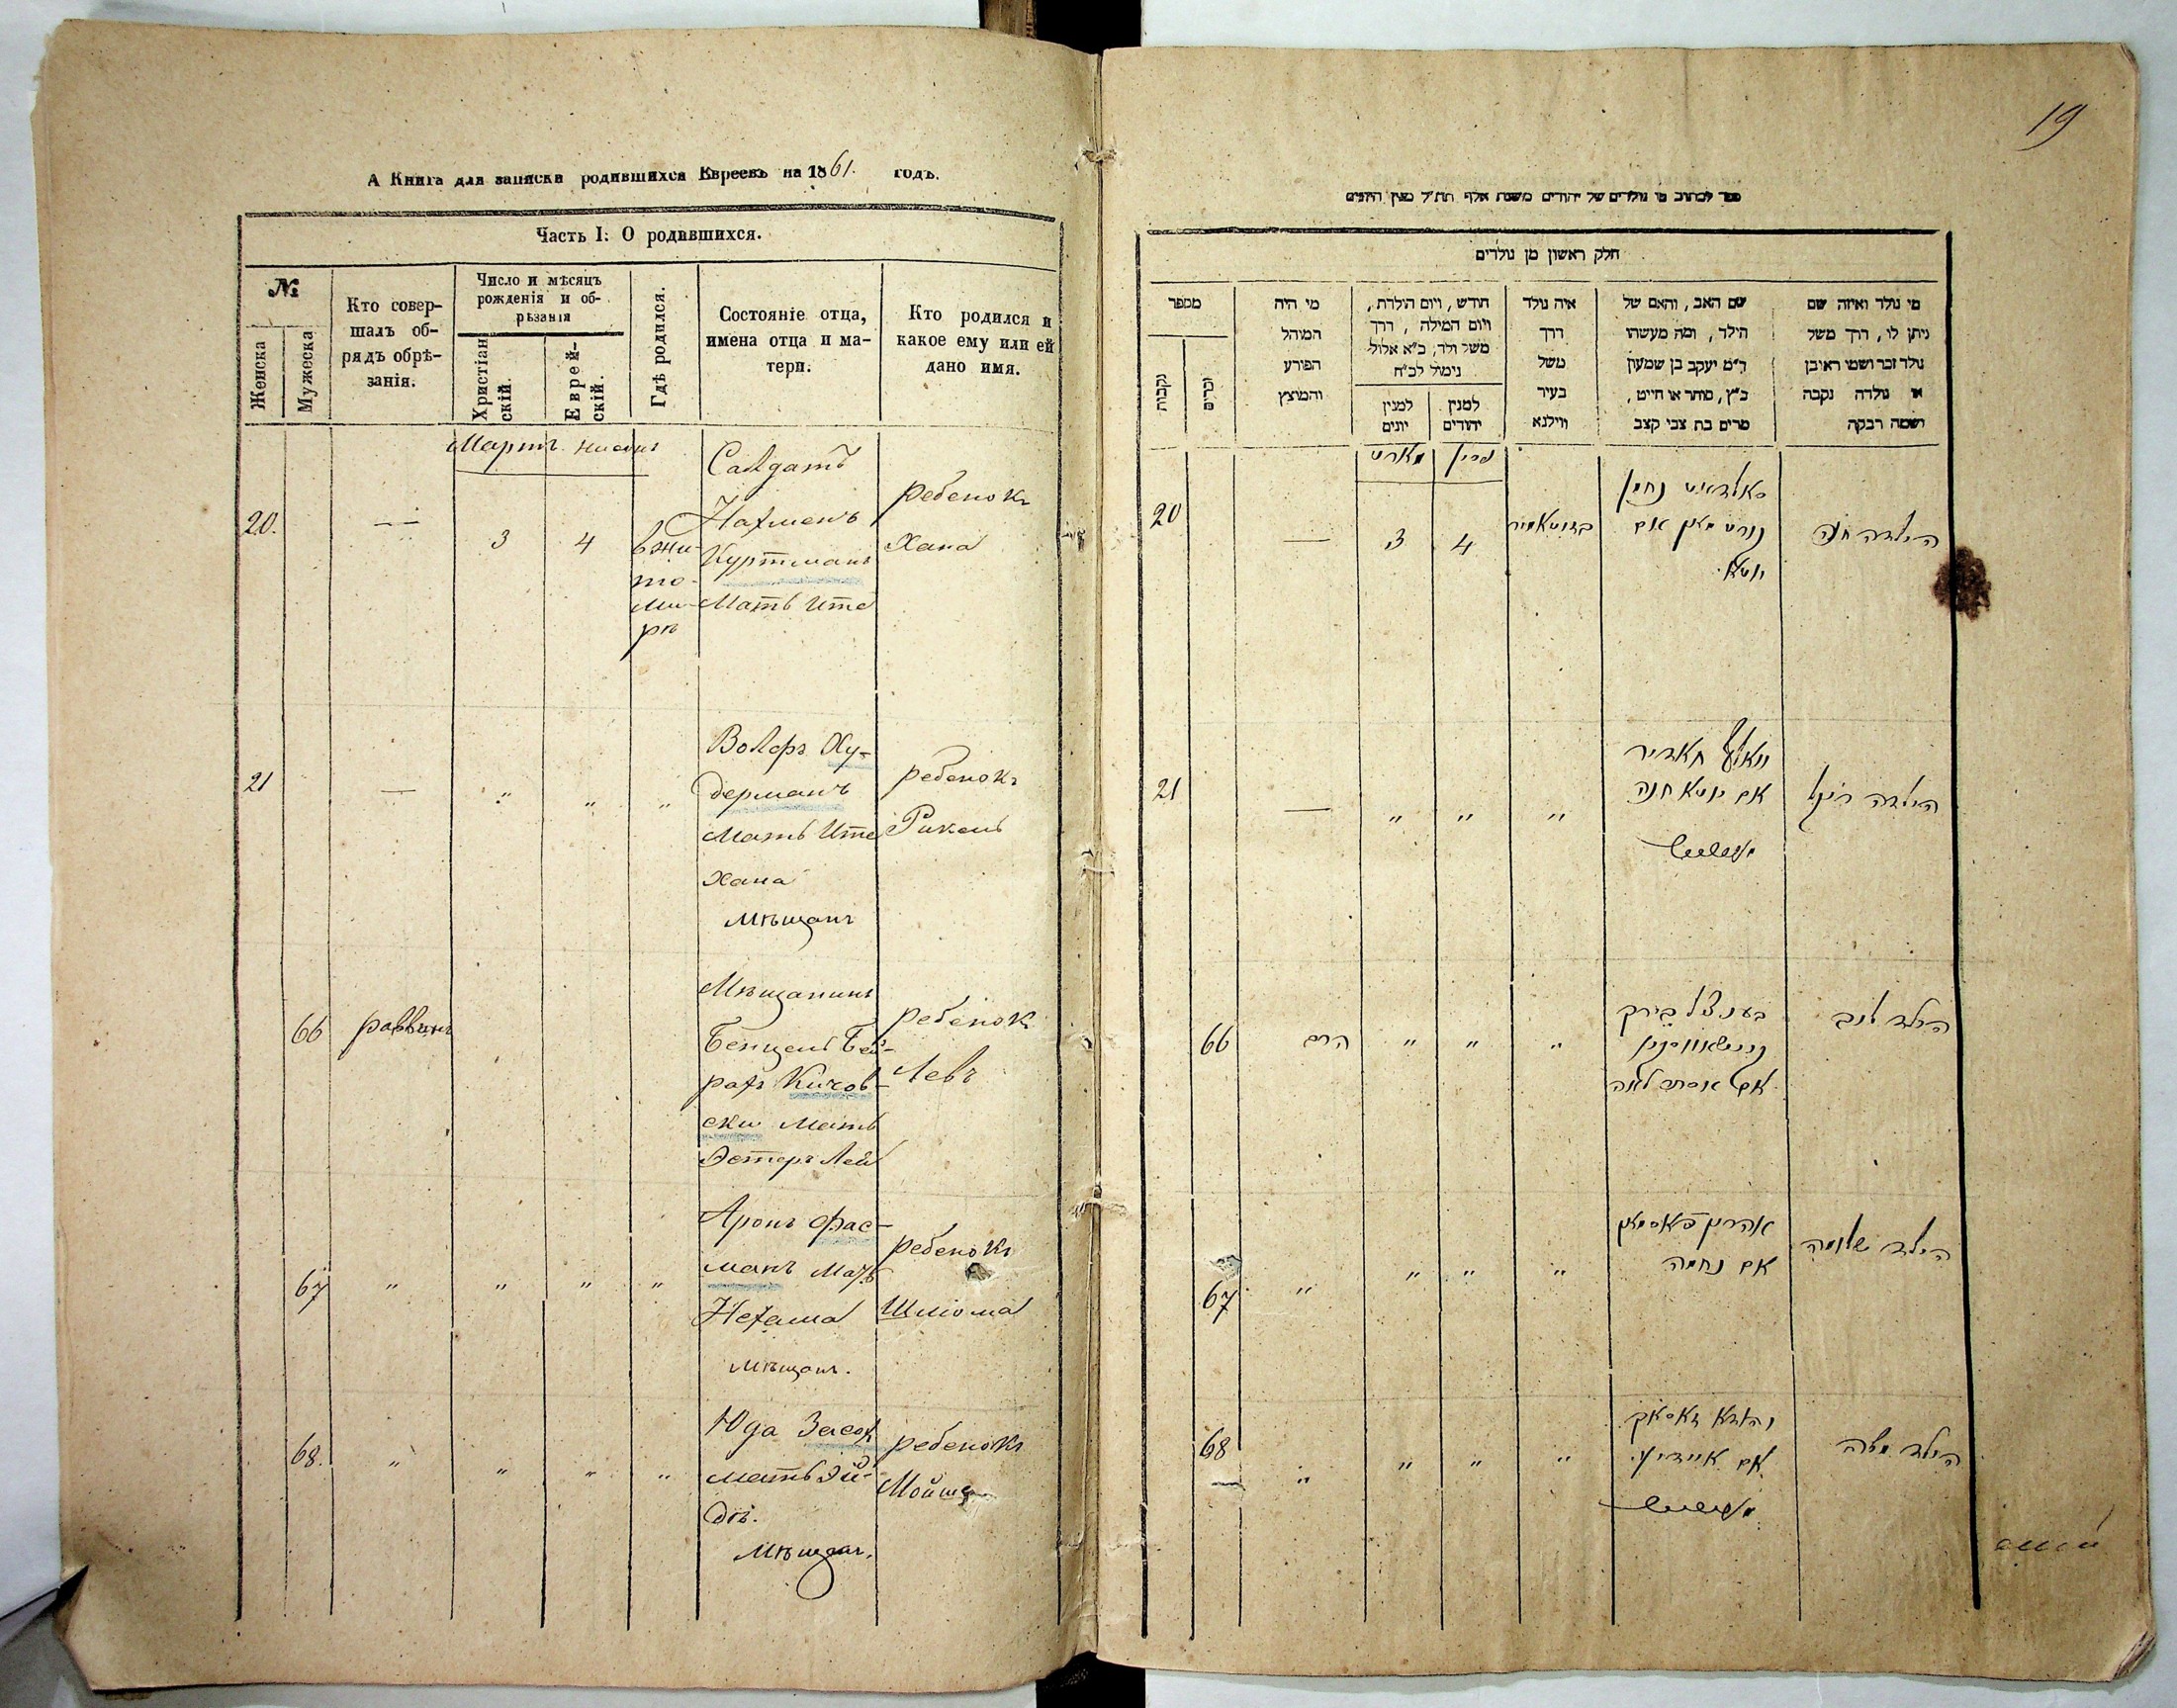 А Книга для записки родившихся Евреевъ на 1861. годъ.
Часть I. О родившихся.
№
Женска
Мужеска
Кто совер-
шалъ об-
рядъ обрѣ-
занія.
Число и мѣсяцъ
рожденія и об-
рѣзанія
Христіан
скій.
Еврей-
скій.
Гдѣ родился.
Состояніе отца,
имена отца и ма-
тери.
Кто родился и
какое ему или ей
дано имя.
Мартъ
20.
3
4
в жи-
то-
ми-
рѣ
Салдатъ
Нахменъ
Куртманъ
Мать Ите
ребенокъ
Хана
21
"
"
"
Волфъ Ху-
дерманъ
Мать Ите
Хана
Мѣщанъ
ребенокъ
Рикель
66
раввинъ
Мѣщанинъ
Бенцель Бей-
рахъ
ски Мать
Эстеръ Лея
ребенокъ
Левъ
67
"
"
"
"
Аронъ Фас-
манъ Мать
Нехама
Мѣщанъ.
ребенокъ
Шліома
68.
"
"
"
"
Юда
Мать Эй-
дѣ.
Мѣщан.
ребенокъ
Мойше
19
ספר לכתוב מן נולדים של יהודים משנת אלף תת"ל
חלק ראשון מן נולדים
מספר
נקבות
זכרים
מי היה
המוהל
הפורע
והמוצץ
חודש, ויום הולדת,
ויום המילה, דרך
משל ולד, כ"א אלול
נימול לכ"ח
למנין
יונים
למנין
יהודים
איה נולד
דרך
משל
בעיר
ווילנא
שם האב, והאם של
הילד, ומה מעשהו
ר"מ יעקב בן שמעון
כ"ץ, סוחר או חייט,
מרים בת צבי קצב
מי נולד ואיזה שם
ניתן לו, דרך משל
נולד זכר ושמו ראובן
או נולדה נקבה
ושמה רבקה
מארט
ניסן
20
3
4
סאלדאט נחמן
אם
יוטא
הילדה חנה
21
"
"
"
וואלף
אם יוטא חנה
הילדה ריקל
66
הרב
"
"
"
בענציל בירך
אם אסתר לאה
הילד לייב
67
"
"
"
"
אהרן פאסמאן
אם נחמה
הילד שלומה
68
"
"
"
"
יהודא
אם איידיע
הילד משה